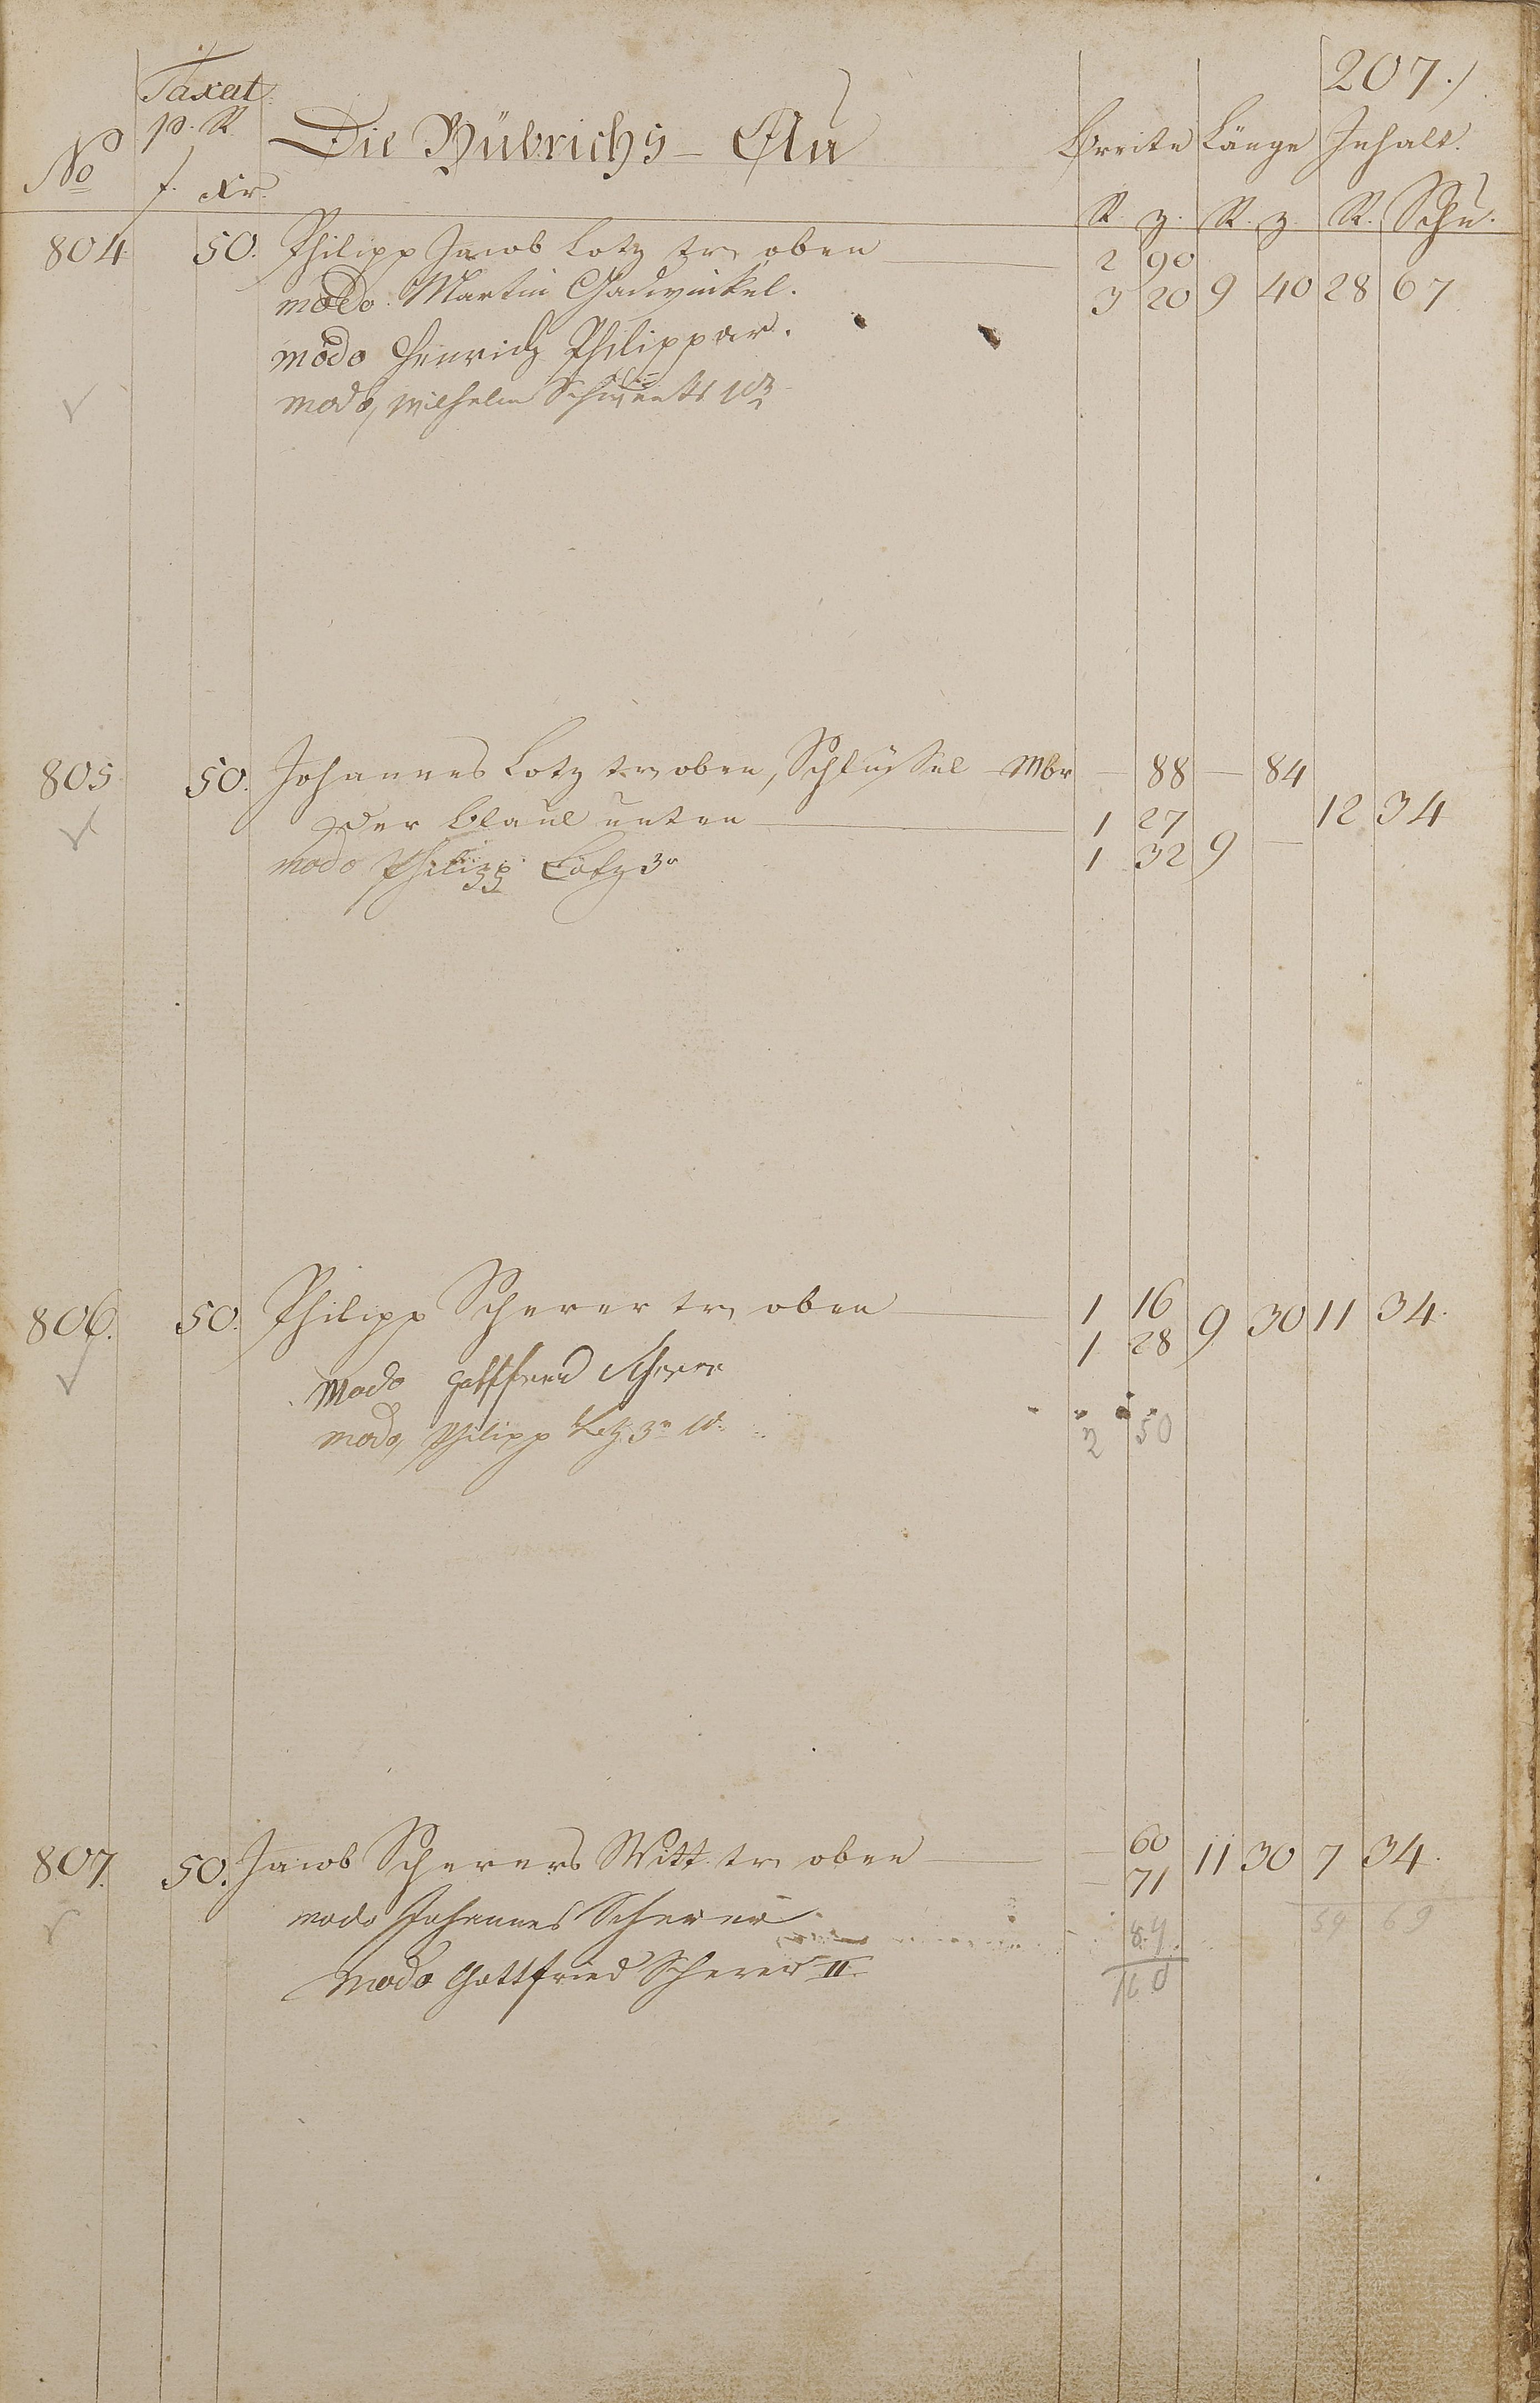 207.
Taxat
p. R
No f. xr. Die Bübrichs-Au Breite Länge Inhalt.
R. z. R. z. R. Schu.
804 50. Philipp Jacob Lotz oben 2 90
modo Martin Gadwinkel. 3 20 9 40 28 67
modo Henrich Philippar.
modo Wilhelm
805 50. Johannes Lotz oben, Schlüssel Mbr — 88 — 84
der unten 1 27 12 34
modo Philipp Lotz 3r 1 32 9 —
806. 50. Philipp Scherer oben 1 16 9 30 11 34.
1 28
modo Gottfried Scherer
modo Philipp Lotz 3r 2 50
807. 50. Jacob Scherers Witt. oben — 60 11 30 7 34.
— 71
modo Johannes Scherer 54 69
modo Gottfried Scherer II.